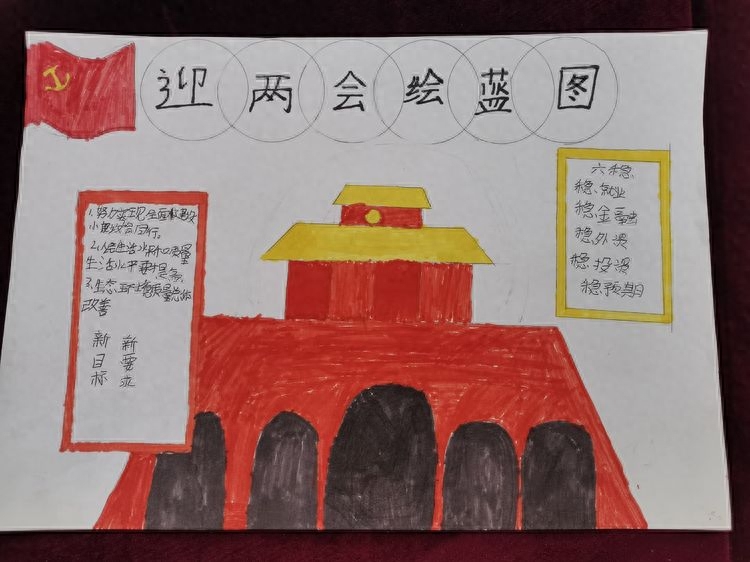 迎两会绘蓝图
1.努力实现全面建设
小康
2.人民生活水平和质量
生活水平
3.生态环境质量总体
改善
新目标
新要求
六稳
稳就业
稳金融
稳外资
稳投资
稳预期